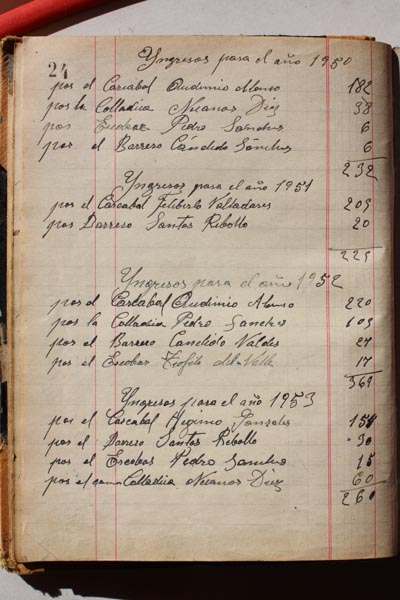 24
Yngresos para el año 1950
por el Carcabal Audinio Alonso 182
por la Colladica Nicanor Diez 38
por Escobar Pedro Sanchez 6
por el Barrero Cándido Sánchez 6
232
Yngresos para el año 1951
por el Carcabal Feliberto Valladares 205
por Barrero Santos Rebollo 20
225
Yngresos para el año 1952
por el Carcabal Audinio Alonso 220
por la Colladica Pedro Sanchez 105
por el Barrero Candido Valdes 27
por el Escobar Teofilo del Valle 17
369
Yngresos para el año 1953
por el Carcabal Higino Gonzales
por el Barrero Santos Rebollo 30
por el Escobar Pedro Sanchez 15
por el Colladica Nicanor Diez 60
260